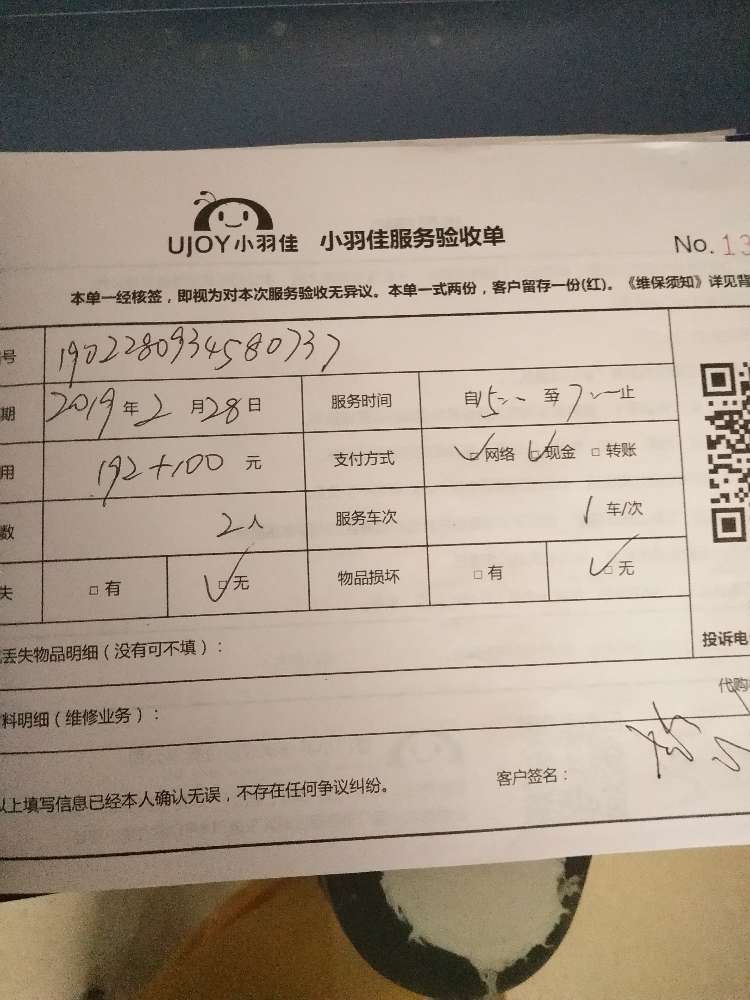 UJOY小羽佳 小羽佳服务验收单
No. 13
本单一经核签，即视为对本次服务验收无异议。本单一式两份，客户留存一份(红)。《维保须知》详见背
号 1902280934580737
期 2019年2月28日 服务时间 自15:- 至7:-止
用 192+100 元 支付方式 □网络 □现金 □转账
数 2人 服务车次 1车/次
失 □有 □无 物品损坏 □有 □无
丢失物品明细（没有可不填）：
投诉电
料明细（维修业务）：
代购
以上填写信息已经本人确认无误，不存在任何争议纠纷。 客户签名：